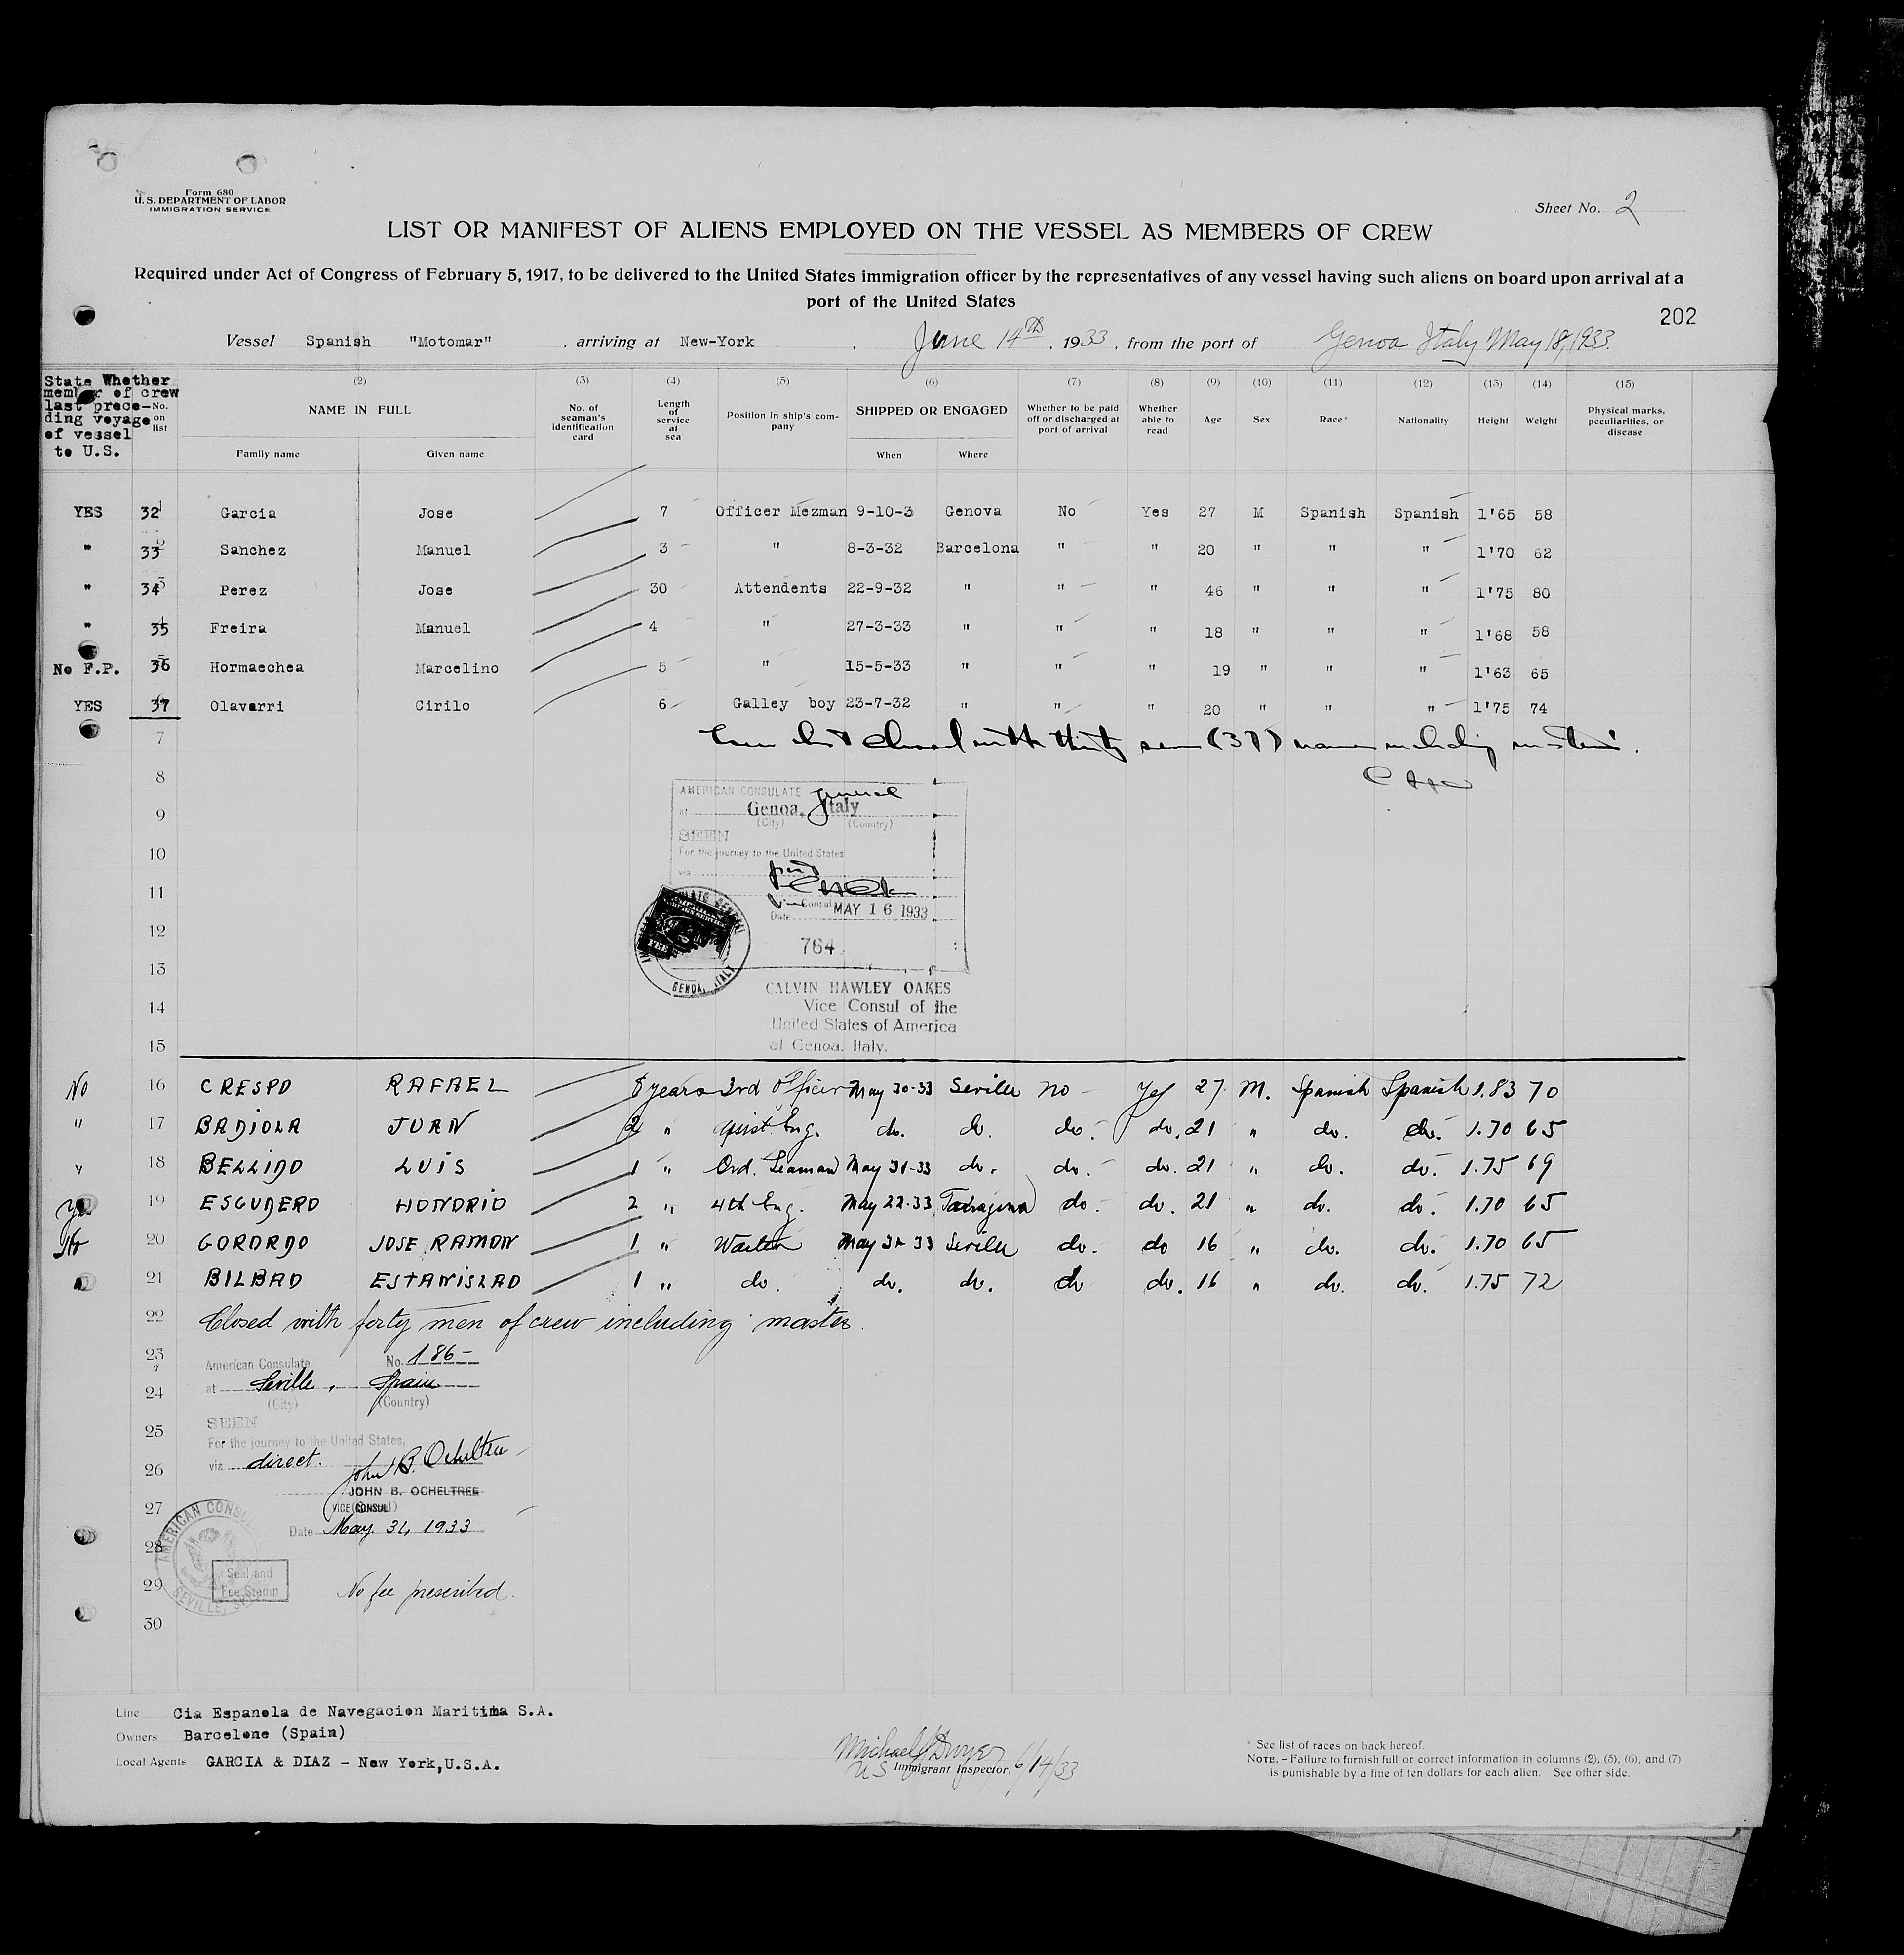 Form 680
U. S. DEPARTMENT OF LABOR
IMMIGRATION SERVICE
Sheet No. 2
LIST OR MANIFEST OF ALIENS EMPLOYED ON THE VESSEL AS MEMBERS OF CREW
Required under Act of Congress of February 5, 1917, to be delivered to the United States immigration officer by the representatives of any vessel having such aliens on board upon arrival at a
port of the United States
202
Vessel Spanish "Motomar" , arriving at New-York June 14th , 1933 , from the port of Genoa Italy May 18, 1933.
State Whether member of crew last preceding voyage of vessel to U.S.
No. on list
(2) NAME IN FULL Family name Given name
(3) No. of seaman's identification card
(4) Length of service at sea
(5) Position in ship's company
(6) SHIPPED OR ENGAGED When Where
(7) Whether to be paid off or discharged at port of arrival
(8) Whether able to read
(9) Age
(10) Sex
(11) Race*
(12) Nationality
(13) Height
(14) Weight
(15) Physical marks, peculiarities, or disease
YES 32 Garcia Jose 7 Officer Mezman 9-10-3 Genova No Yes 27 M Spanish Spanish 1'65 58
" 33 Sanchez Manuel 3 " 8-3-32 Barcelona " " 20 " " " 1'70 62
" 34 Perez Jose 30 Attendents 22-9-32 " " " 46 " " " 1'75 80
" 35 Freira Manuel 4 " 27-3-33 " " " 18 " " " 1'68 58
No F.P. 36 Hormaechea Marcelino 5 " 15-5-33 " " " 19 " " " 1'63 65
YES 37 Olavarri Cirilo 6 Galley boy 23-7-32 " " " 20 " " " 1'75 74
7 Crew list closed with thirty seven (37) names including master.
8
CHO
AMERICAN CONSULATE General
at Genoa, Italy
(City) (Country)
9
SEEN
10 For the journey to the United States
via
11
Consul
Date MAY 16 1933
12
764
GENOA, ITALY
13
CALVIN HAWLEY OAKES
14 Vice Consul of the
United States of America
15 at Genoa, Italy.
No 16 CRESPO RAFAEL 8 years 3rd Officer May 30-33 Seville no Yes 27 M. Spanish Spanish 1.83 70
" 17 BADIOLA JUAN 2 " do. do. do. do. 21 " do. do. 1.70 65
" 18 BELLIDO LUIS 1 " Ord. Seaman May 31-33 do. do. do. 21 " do. do. 1.75 69
Yes 19 ESCUDERO HONORIO 2 " 4th Eng. May 22-33 Tarragona do. do. 21 " do. do. 1.70 65
20 GORORDO JOSE RAMON 1 " May 31-33 Seville do. do 16 " do. do. 1.70 65
21 BILBAO ESTANISLAO 1 " do. do. do. do do. 16 " do. do. 1.75 72
22 Closed with forty men of crew including master.
23 American Consulate No. 186-
24 at Seville, Spain
(City) (Country)
25 SEEN
For the journey to the United States,
26 via direct. John B. Ocheltree
JOHN B. OCHELTREE
27 VICE CONSUL
Date May 31, 1933
28
AMERICAN CONSULATE
SEVILLE, SPAIN
Seal and
Fee Stamp
29 No fee prescribed.
30
Line Cia Espanola de Navegacion Maritima S.A.
Owners Barcelone (Spain)
Local Agents GARCIA & DIAZ - New York,U.S.A.
Michael J Dwyer
US Immigrant Inspector. 6/14/33
* See list of races on back hereof.
NOTE. – Failure to furnish full or correct information in columns (2), (5), (6), and (7)
is punishable by a fine of ten dollars for each alien. See other side.